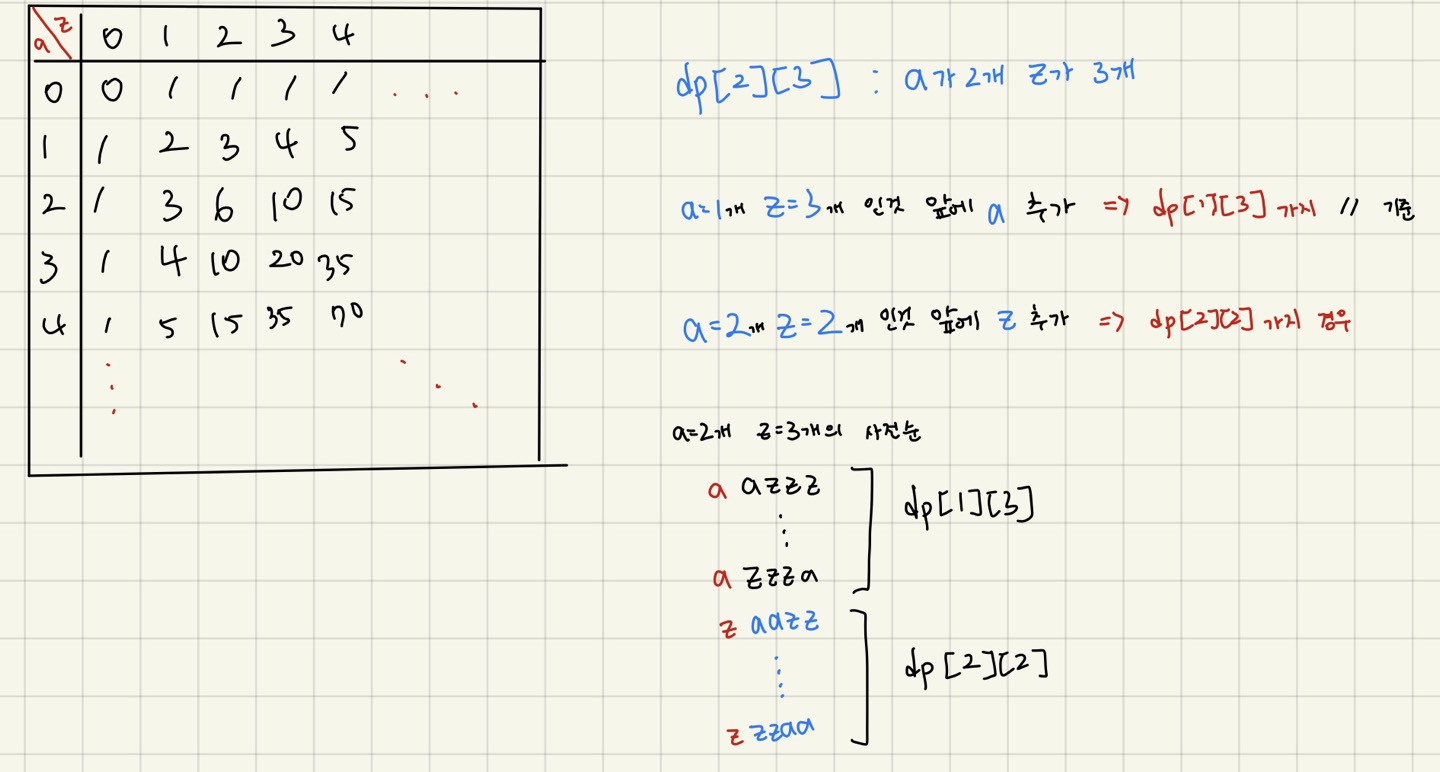 a z 0 1 2 3 4
0 0 1 1 1 1 . . .
1 1 2 3 4 5
2 1 3 6 10 15
3 1 4 10 20 35
4 1 5 15 35 70
dp[2][3] : a가 2개 z가 3개
a=1개 z=3개 인것 앞에 a 추가 => dp[1][3] 가지 // 기준
a=2개 z=2개 인것 앞에 z 추가 => dp[2][2] 가지 경우
a=2개 z=3개의 사전순
a azzz
dp[1][3]
a zzza
z aazz
dp[2][2]
z zzaa